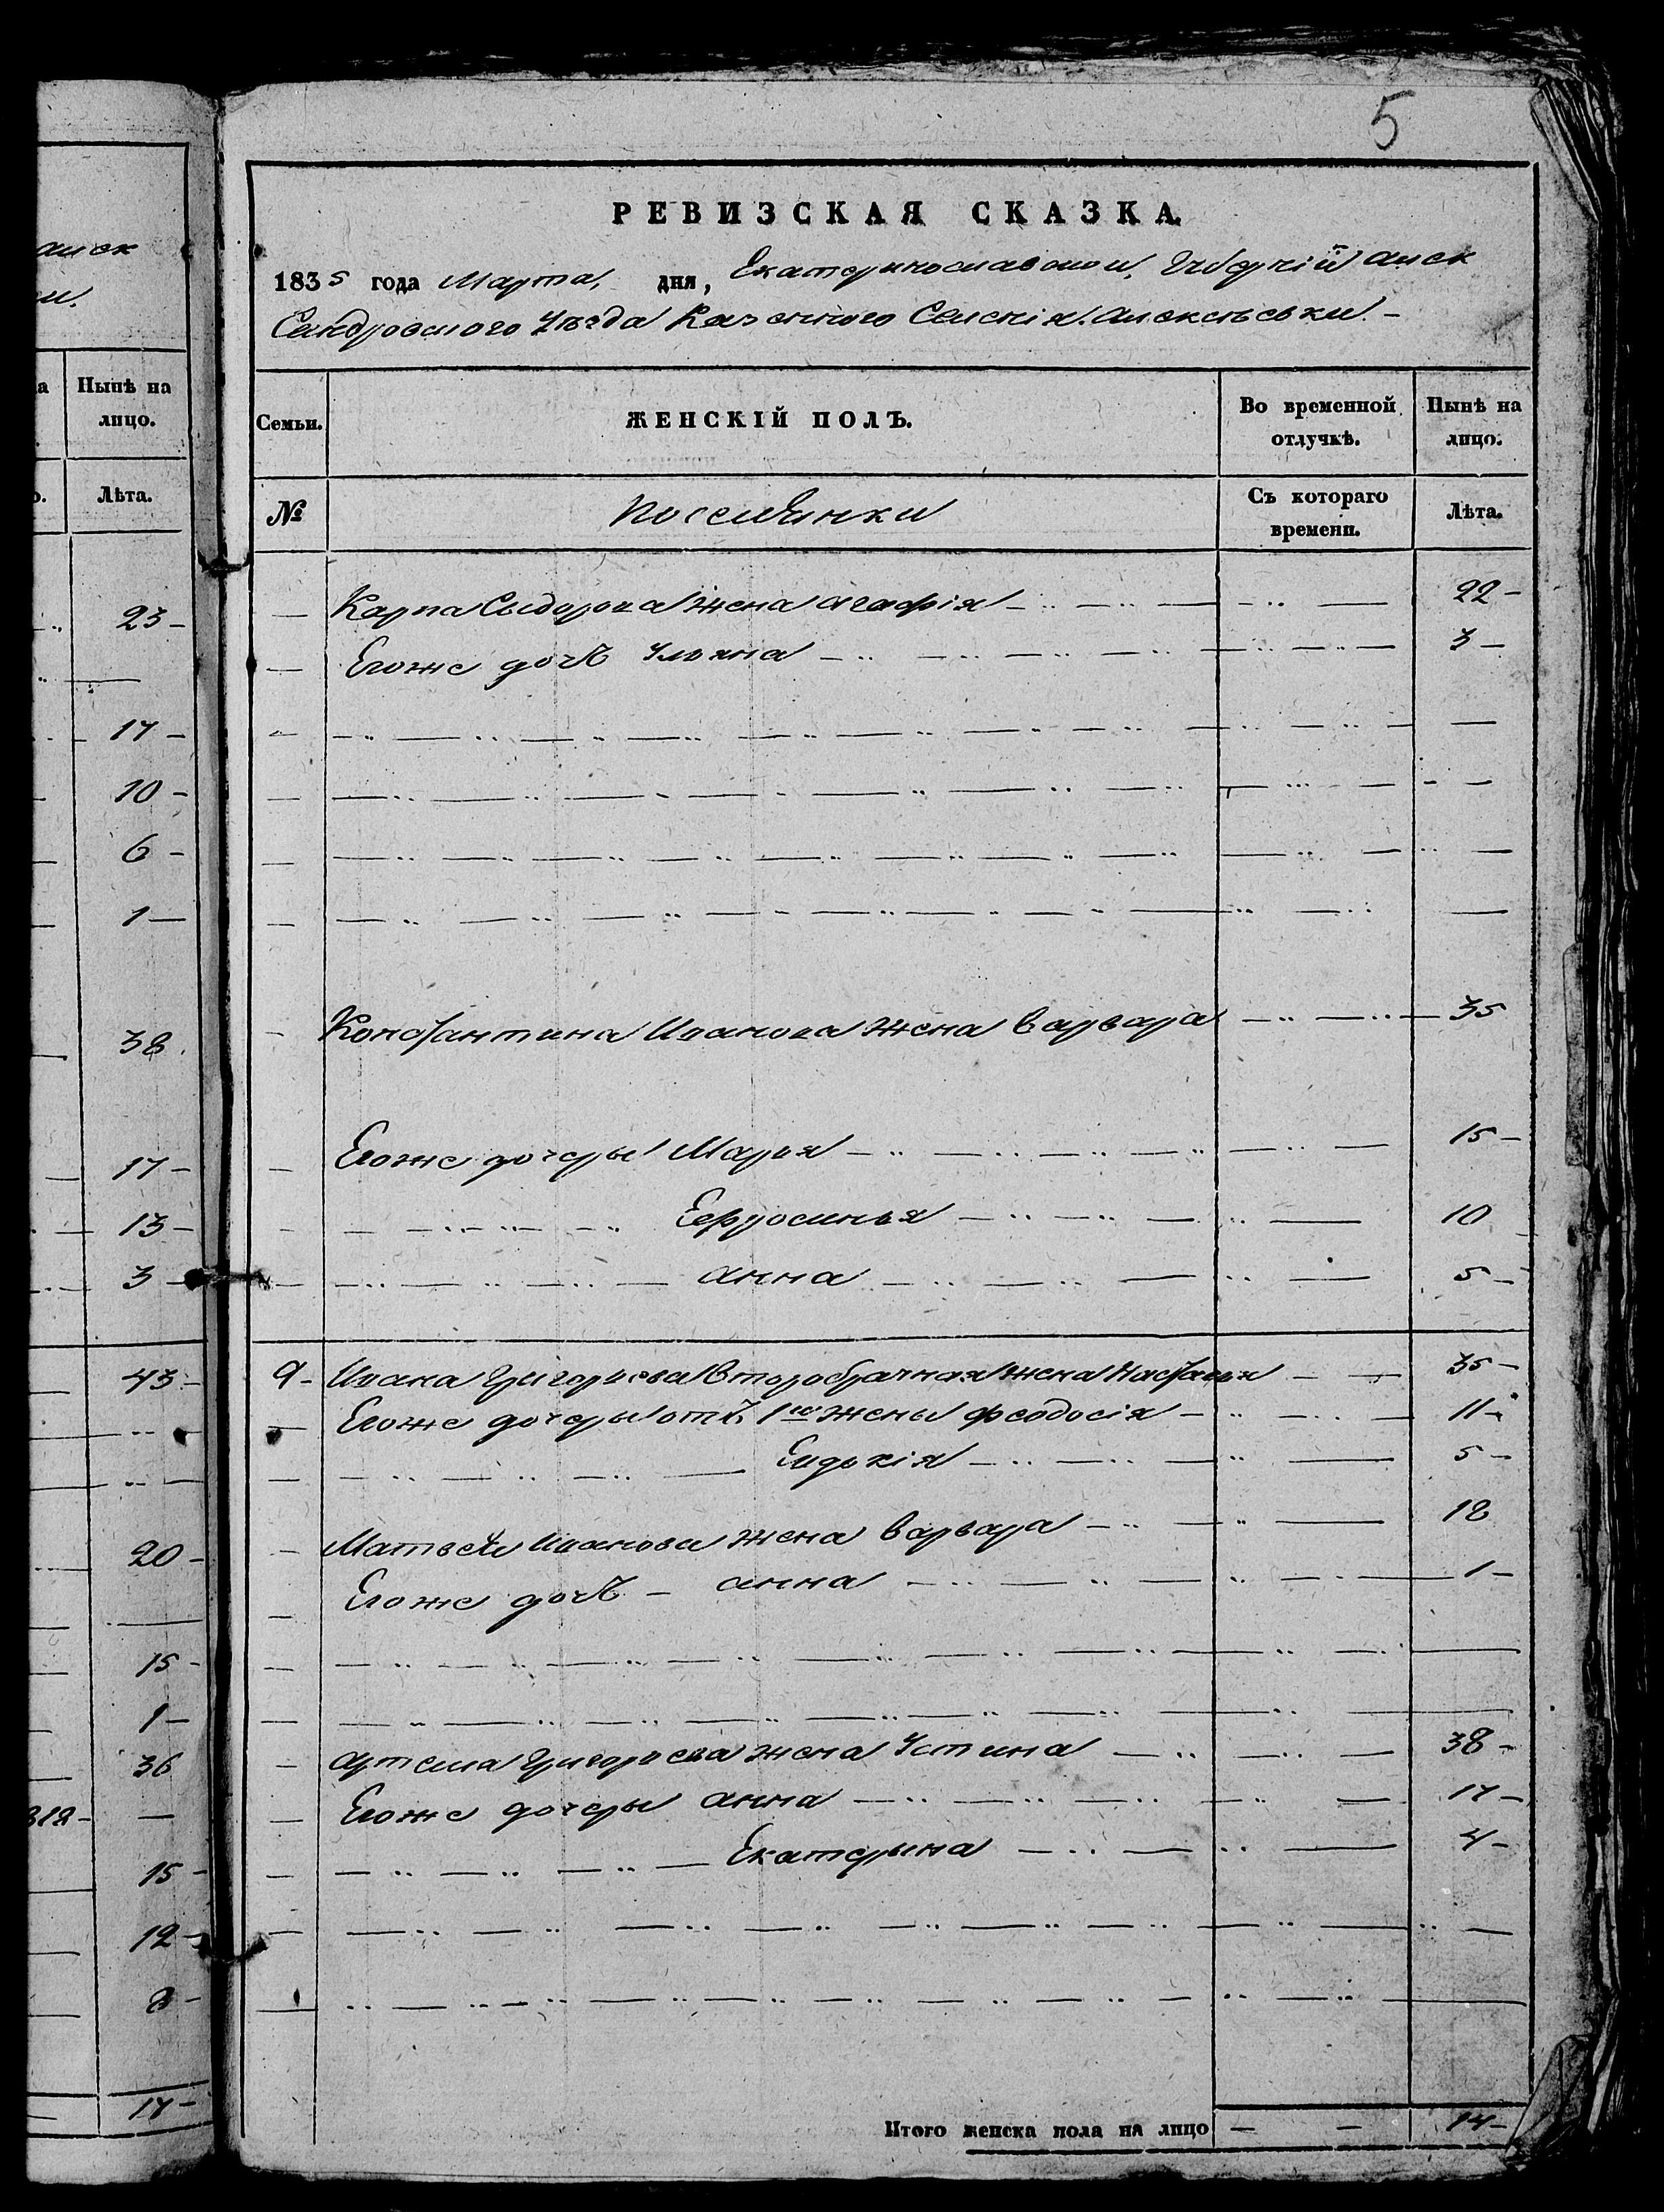 5
РЕВИЗСКАЯ СКАЗКА.
1835 года Марта, дня, Екатеринославской Губерніи Алек
Сандровского Уезда Казенного Селенія Алексеевки. –
Семьи. ЖЕНСКІЙ ПОЛЪ. Во временной отлучкѣ. Нынѣ на лицо.
№ Поселянки Съ котораго времени. Лѣта.
Карпа Сыдорова жена Агафія 22
Егоже дочь Ульяна 3
Константина Иванова жена Варвара 35
Егоже дочеры Марья 15
Ефросинья 10
анна 5
9 Ивана Григорьева второбрачная жена Настасья 35
Егоже дочеры отъ 1й жены феодосія 11
Евдокія 5
Матвея Иванова жена Варвара 18
Егоже дочь анна 1
Артема Григорьева жена Устина 38
Егоже дочеры анна 17
Екатерына 4
Итого женска пола на лицо — — 14
алск
и.
а Нынѣ на лицо.
Лѣта.
23
17
10
6
1
38
17
13
3
43
20
15
1
36
15
12
8
17